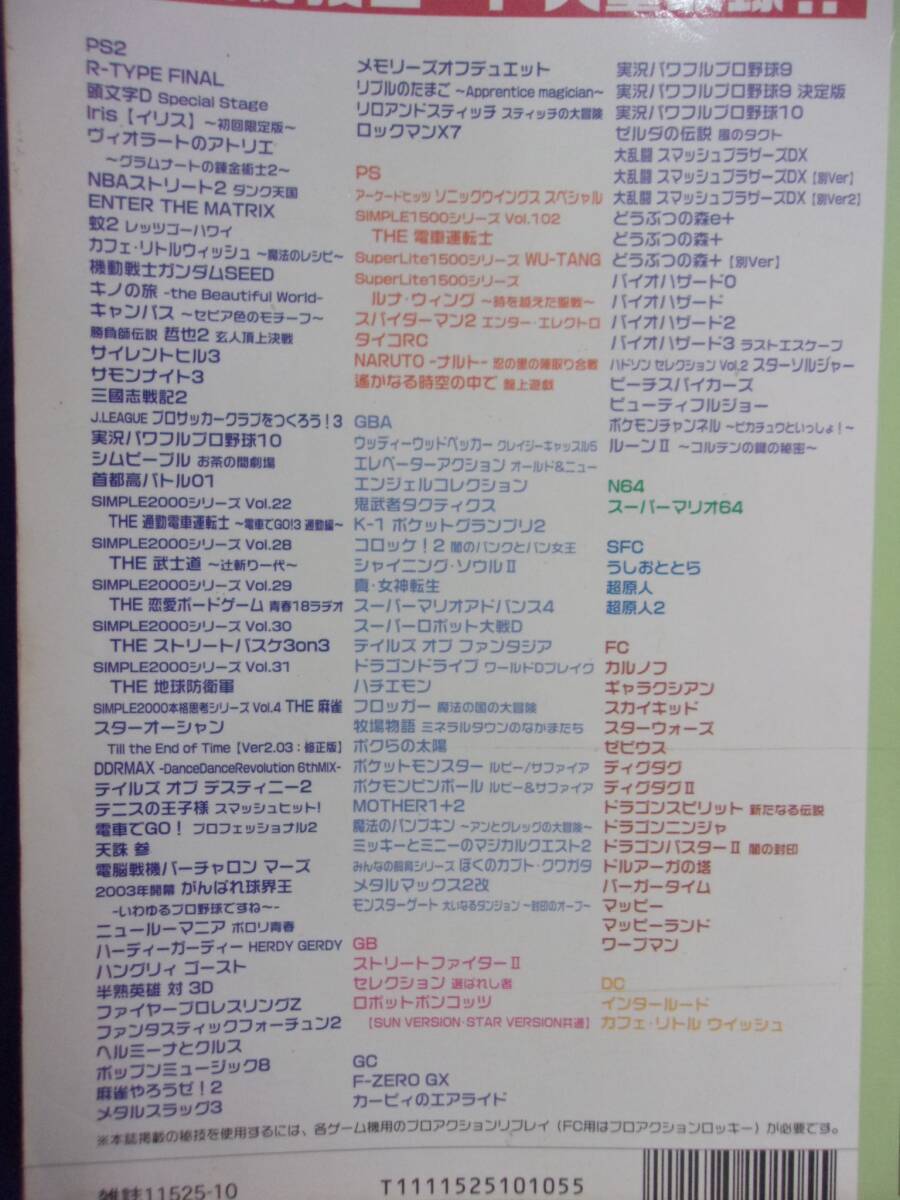 PS2
R-TYPE FINAL
頭文字D Special Stage
Iris【イリス】〜初回限定版〜
ヴィオラートのアトリエ
〜グラムナートの錬金術士2〜
NBAストリート2 ダンク天国
ENTER THE MATRIX
蚊2 レッツゴーハワイ
カフェ・リトルウィッシュ 〜魔法のレシピ〜
機動戦士ガンダムSEED
キノの旅 -the Beautiful World-
キャンバス 〜セピア色のモチーフ〜
勝負師伝説 哲也2 玄人頂上決戦
サイレントヒル3
サモンナイト3
三國志戦記2
J.LEAGUE プロサッカークラブをつくろう！3
実況パワフルプロ野球10
シムピープル お茶の間劇場
首都高バトル01
SIMPLE2000シリーズ Vol.22
THE 通勤電車運転士 〜電車でGO!3 通勤編〜
SIMPLE2000シリーズ Vol.28
THE 武士道 〜辻斬り一代〜
SIMPLE2000シリーズ Vol.29
THE 恋愛ボードゲーム 青春18ラヂオ
SIMPLE2000シリーズ Vol.30
THE ストリートバスケ3on3
SIMPLE2000シリーズ Vol.31
THE 地球防衛軍
SIMPLE2000本格思考シリーズ Vol.4 THE 麻雀
スターオーシャン
Till the End of Time【Ver2.03：修正版】
DDRMAX -DanceDanceRevolution 6thMIX-
テイルズ オブ デスティニー2
テニスの王子様 スマッシュヒット!
電車でGO！ プロフェッショナル2
天誅 参
電脳戦機バーチャロン マーズ
2003年開幕 がんばれ球界王
-いわゆるプロ野球ですね〜-
ニュールーマニア ポロリ青春
ハーディーガーディー HERDY GERDY
ハングリィ ゴースト
半熟英雄 対 3D
ファイヤープロレスリングZ
ファンタスティックフォーチュン2
ヘルミーナとクルス
ポップンミュージック8
麻雀やろうゼ！2
メタルスラッグ3
メモリーズオフデュエット
リプルのたまご 〜Apprentice magician〜
リロアンドスティッチ スティッチの大冒険
ロックマンX7
PS
アーケードヒッツ ソニックウイングス スペシャル
SIMPLE1500シリーズ Vol.102
THE 電車運転士
SuperLite1500シリーズ WU-TANG
SuperLite1500シリーズ
ルナ・ウィング 〜時を越えた聖戦〜
スパイダーマン2 エンター・エレクトロ
タイコRC
NARUTO -ナルト- 忍の里の陣取り合戦
遙かなる時空の中で 盤上遊戯
GBA
ウッディーウッドペッカー クレイジーキャッスル5
エレベーターアクション オールド&ニュー
エンジェルコレクション
鬼武者タクティクス
K-1 ポケットグランプリ2
コロッケ！2 闇のバンクとバン女王
シャイニング・ソウルⅡ
真・女神転生
スーパーマリオアドバンス4
スーパーロボット大戦D
テイルズ オブ ファンタジア
ドラゴンドライブ ワールドDブレイク
ハチエモン
フロッガー 魔法の国の大冒険
牧場物語 ミネラルタウンのなかまたち
ボクらの太陽
ポケットモンスター ルビー/サファイア
ポケモンピンボール ルビー&サファイア
MOTHER1+2
魔法のパンプキン 〜アンとグレッグの大冒険〜
ミッキーとミニーのマジカルクエスト2
みんなの飼育シリーズ ぼくのカブト・クワガタ
メタルマックス2改
モンスターゲート 大いなるダンジョン 〜封印のオーブ〜
GB
ストリートファイターⅡ
セレクション 選ばれし者
ロボットポンコッツ
【SUN VERSION・STAR VERSION共通】
GC
F-ZERO GX
カービィのエアライド
実況パワフルプロ野球9
実況パワフルプロ野球9 決定版
実況パワフルプロ野球10
ゼルダの伝説 風のタクト
大乱闘 スマッシュブラザーズDX
大乱闘 スマッシュブラザーズDX【別Ver】
大乱闘 スマッシュブラザーズDX【別Ver2】
どうぶつの森e+
どうぶつの森+
どうぶつの森+【別Ver】
バイオハザード0
バイオハザード
バイオハザード2
バイオハザード3 ラストエスケープ
ハドソン セレクション Vol.2 スターソルジャー
ビーチスパイカーズ
ビューティフルジョー
ポケモンチャンネル 〜ピカチュウといっしょ！〜
ルーンⅡ 〜コルテンの鍵の秘密〜
N64
スーパーマリオ64
SFC
うしおととら
超原人
超原人2
FC
カルノフ
ギャラクシアン
スカイキッド
スターウォーズ
ゼビウス
ディグダグ
ディグダグⅡ
ドラゴンスピリット 新たなる伝説
ドラゴンニンジャ
ドラゴンバスターⅡ 闇の封印
ドルアーガの塔
バーガータイム
マッピー
マッピーランド
ワープマン
DC
インタールード
カフェ・リトル ウイッシュ
※本誌掲載の秘技を使用するには、各ゲーム機用のプロアクションリプレイ（FC用はプロアクションロッキー）が必要です。
雑誌11525-10
T1111525101055